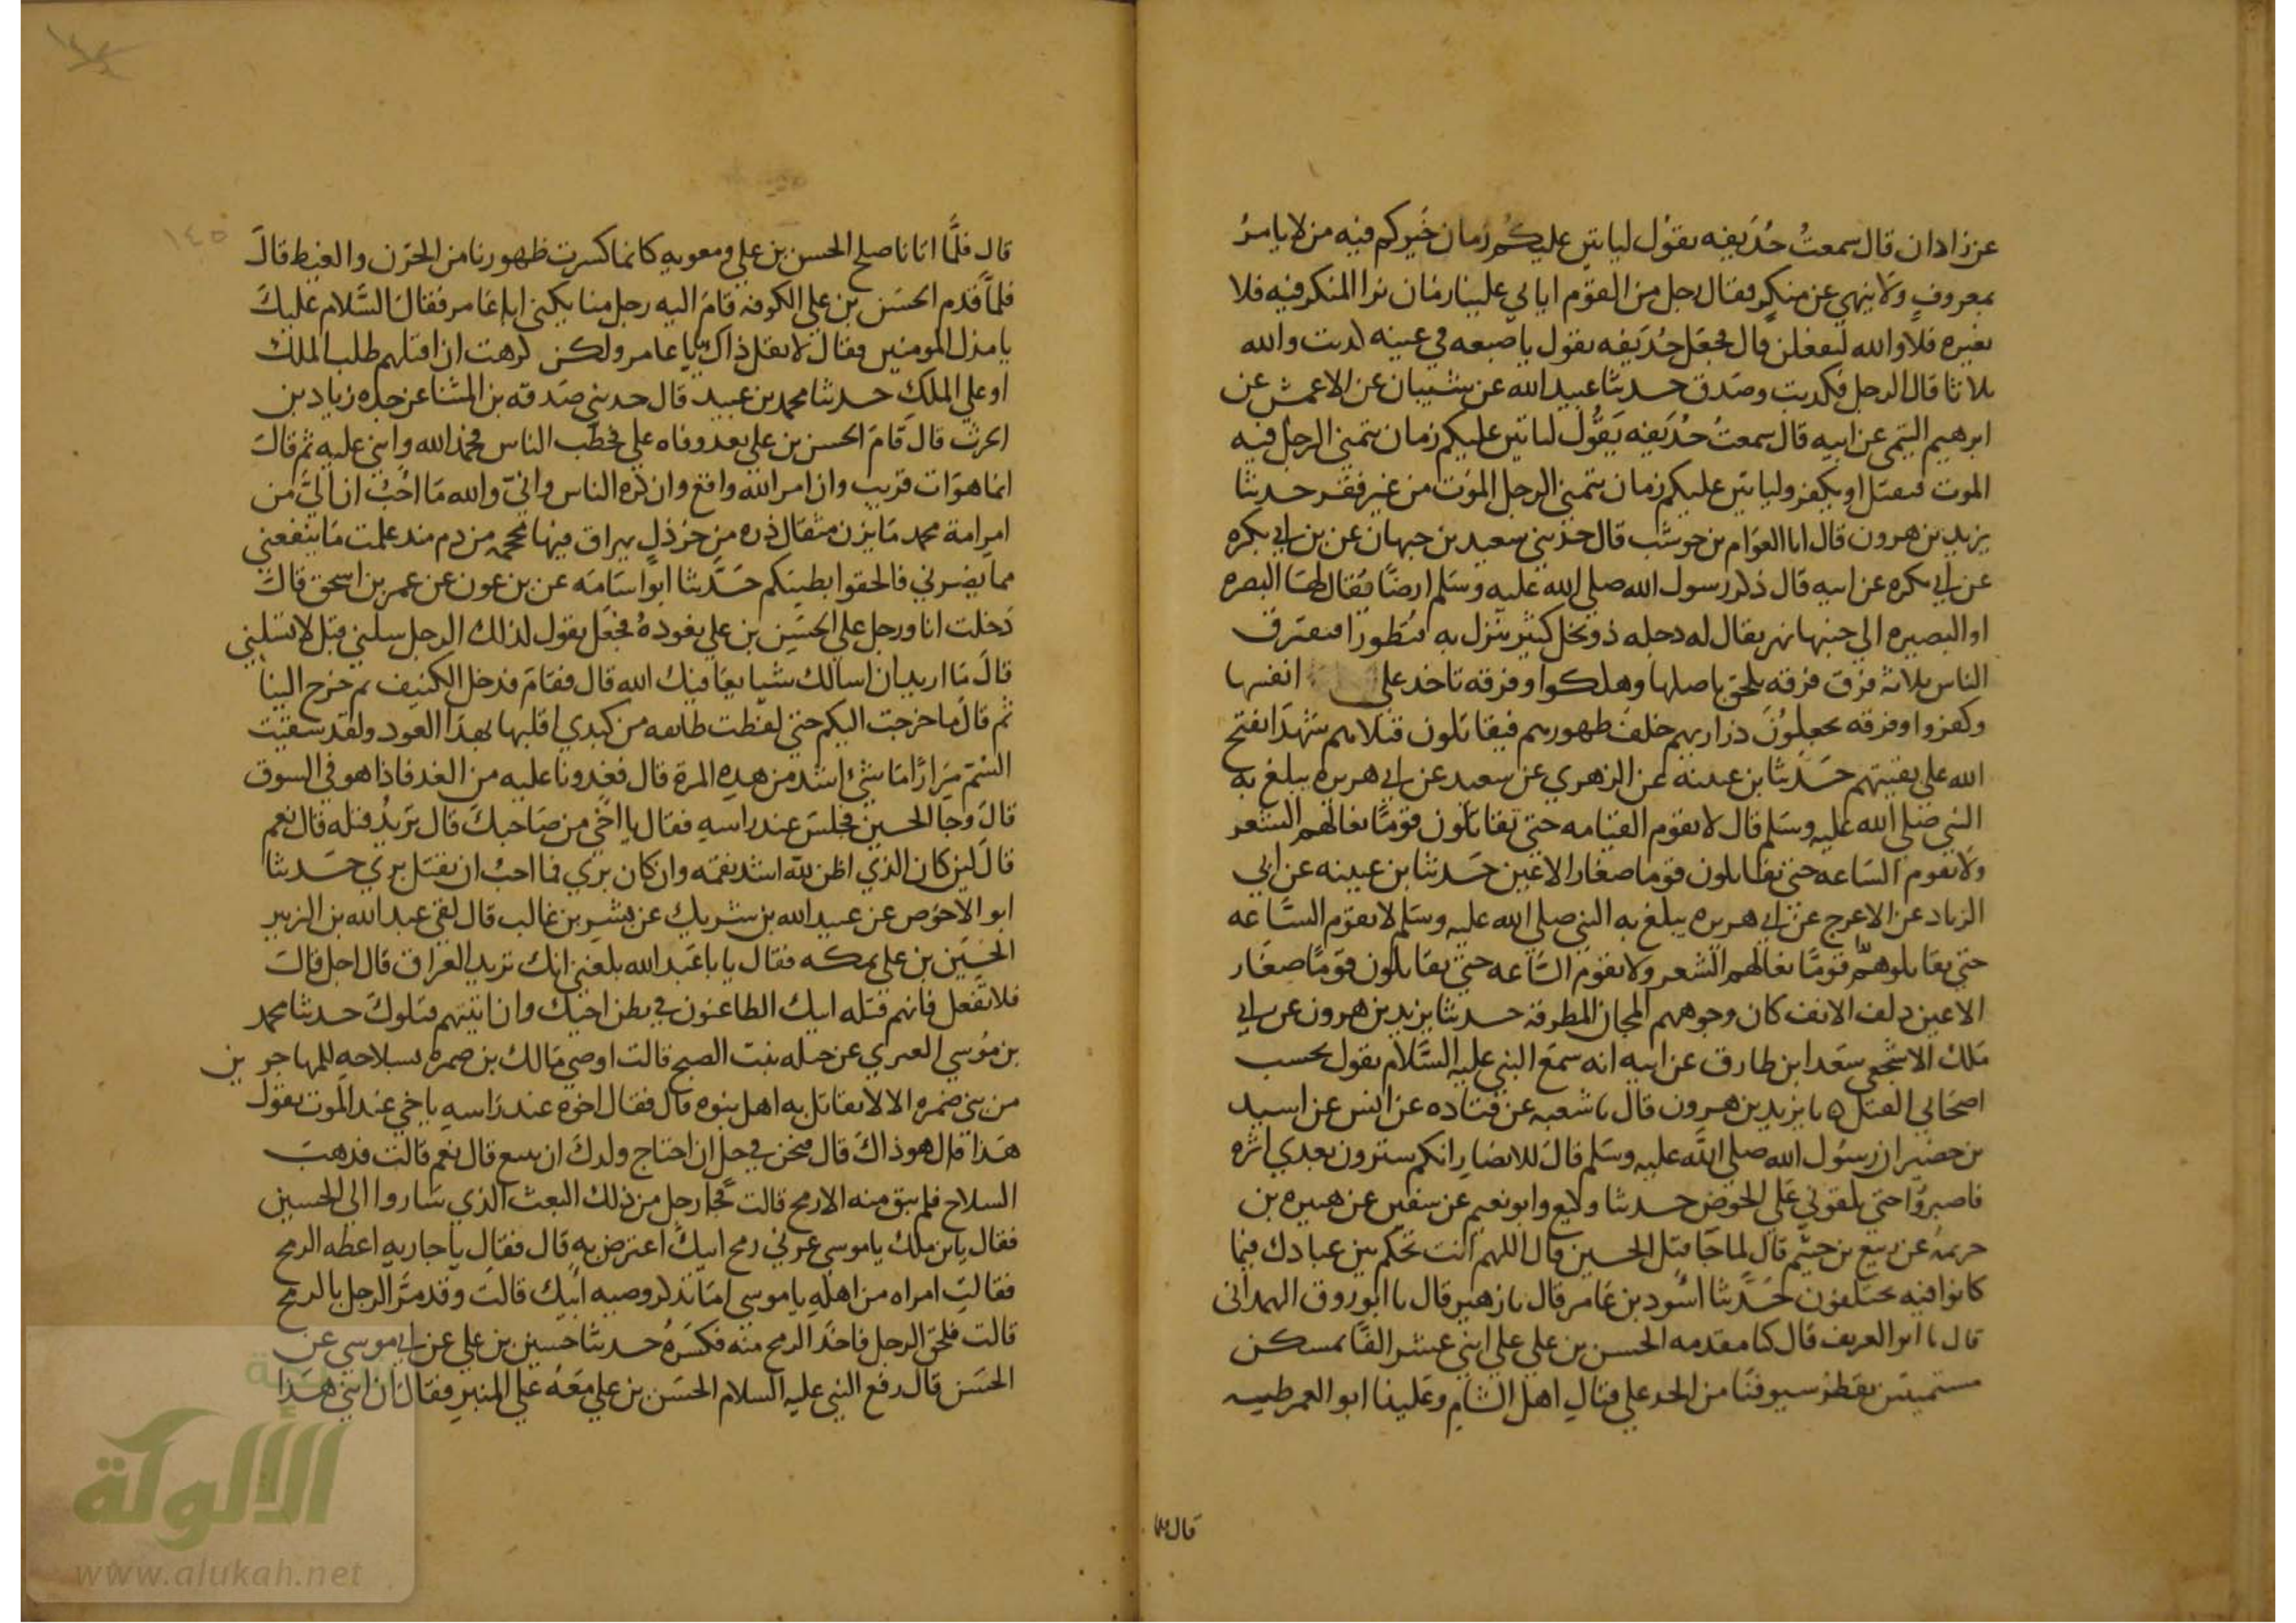 عن زاذان قال سمعتُ حُذَيفه يقوُل لياتين عليكُم زمان خَيركم فيه من لا يامرُ
بمعروفٍ ولا ينهي عن منكرٍ فقال رجل من القوم اياتي علينا زمان نرا المنكر فيه فلا
نغيره فلا والله لنفعلن قال فجعَل حُذيفه يقول باصبعه في عينه كذبت والله
ثلاثا قال الرجل فكذبت وصَدق حدثنا عبيد الله عن شيبان عن الاعمش عن
ابرهيم التيمي عن ابيه قال سمعتُ حُذيفه يَقُول لياتين عليكم زمان يتمني الرجل فيه
الموت فيقتل او يكفر ولياتين عليكم زمان يتمني الرجل الموَت من غير فقر حدثنا
يزيد بن هرون قال انا العوّام بن حوشب قال حدثني سعيد بن جبهان عن بن ابي بكره
عن ابي بكره عن ابيه قال ذكر رسول الله صلي الله عليه وسَلم ارضًا فقال لها البصره
او البصيره الي جنبها نهر يقال له دجله ذو نخل كثير ينزل به قنطورا فيفترق
الناس ثلاثه فرق فرقه يلحق باصلها وهلكوا وفرقه تاخذ علي انفسها
وكفروا وفرقه يجعلوُن ذراريهم خلف ظهورهم فيقاتلون قتلاهم شهدا يفتح
الله علي بقيتهم حَدثنا بن عيينه عن الزهري عن سعيد عن ابي هريره يبلغ به
النبي صَلي الله عليه وسَلم قال لا تقوم القيامه حتي تقاتلون قومًا نعالهم الشعر
ولا تقوم السَاعه حتي تقاتلون قوما صغار الاعين حَدثنا بن عيينه عن ابي
الزناد عن الاعرج عن ابي هريره يبلغ به النبي صلي الله عليه وسَلم لا تقوم السَّاعه
حتي تقاتلوهم قومًا نعالهم الشعر ولا تقوم السَّاعه حتي تقاتلون قومًا صغَار
الاعين دلف الانف كان وجوههم المجان المطرقه حدثنا يزيد بن هرون عن ابي
مَلك الاشجعي سعَد ابن طارق عن ابيه انه سمَع النبي عليه السَّلام يقول بحسب
اصحَابي القتل ه نا يزيد بن هرون قال نا شعبه عن قتاده عن انس عن اسيد
بن حضير ان رسُول الله صلي الله عليه وسَلم قال للانصَارِ انكم سترون بعدي اثره
فاصبروُا حتي تلقوني عَلي الحوض حدثنا وكيع وابو نعيم عن سفين عن هبيره بن
حزيمه عن ربيع بن خيثم قال لما جَا قتل الحسين قال اللهم انت تحكم بين عبادك فيما
كانوا فيه يختلفون حَدَّثنا اسُود بن عَامر قال نا زهير قال نا ابو روق الهمداني
قال نا ابو الغريف قال كنا مقدمه الحسن بن علي علي اثني عشر الفًا بمسكن
مستميتين تقطر سيوفنَا من الحد علي قتالِ اهل الشامِ وعَلينا ابو العمرطيه
قال فلما
١٤٥
قال فلمَّا اتانا صلح الحسن بن علي ومعويه كانما كسرت ظهورنا من الحَزن والغيط قالَ
فلمَّا قدم الحسَن بن علي الكوفه قامَ اليه رجل منا يكني ابا عَامر فقال السَّلام عليكَ
يا مذل المومنين فقال لا تقل ذاك يا ابا عامر ولكن كرهت ان اقتلهم طلب الملك
او علي الملكِ حدثنا محمد بن عبيد قال حدثني صَدقه بن المثنا عن جده زياد بن
الحرث قال قامَ الحسن بن علي بعد وفاه علي فخطَب الناس فحمد الله واثني عليه ثم قالَ
انما هوَ ات قريب وان امر الله واقع وان كره الناس وانيّ والله مَا احُبُ ان الي من
امرِ امة محمد مَا يزن مثقال ذره من خرذلٍ يهراق فيها محجمه من دم مند علمت مَا ينفعني
مما يضرني فالحقوا بطيتكم حَدَّثنا ابوُ اسَامَه عن بن عون عن عمير بن اسحق قالَ
دَخلت انا ورجل علي الحسَين بن علي يعُودهُ فجعَل يقول لذلك الرجل سلني قبل لا تسلني
قالَ مَا اريد ان اسالك شيا يعَافيك الله قال فقامَ فدخل الكنيف ثم خرج الينا
ثم قال ما خرجت اليكم حتي لفظت طائفه من كبدي اقلبها بهذا العود ولقد سقيت
السُم مِرَارًا مَا شيُ اشد من هده المرة قال فغدونا عليه من الغد فاذا هو في السوق
قالَ وجا الحسين فجلسَ عند راسه فقال يا اخي من صَاحبكَ قال تريدُ قتله قال نعم
قالَ لين كان الذي اظن لله اشد نقمه وان كان بري فما احبُ ان يقتل بري حَدثنا
ابو الاحوَص عن عبيد الله بن شريك عن بشر بن غالب قال لقي عبد الله بن الزبير
الحسَين بن علي بمكه فقال يا با عَبد الله بلغني انك تريد العراق قال اجل قالَ
فلا تفعل فانهم قتله ابيك الطاعنون في بطن اخيك وان اتيتهم قتلوكَ حدثنا محمد
بن موُسي العبري عن جبله بنت الصبح قالت اوصي مَالك بن ضمره بسلاحهِ للمهاجرين
من بني ضمره الا لا يقاتل به اهل بنوه قال فقال اخوه عند رَاسهِ يا اخي عند الموت تقول
هَذا قال هوَ ذاكَ قال فنحن في حل ان احتاج ولدكَ ان يبيع قال نعم قالت فذهبَ
السلاح فلم يبق منه الا رمح قالت فجا رجل من ذلك البعث الذي سَاروا الي الحسين
فقال يا بن ملك يا موسي عرني رمح ابيك اعترض به قال فقال يا جاريه اعطه الرمح
فقالتِ امراه من اهلهِ يا موسي امَا تذكر وصيه ابيك قالت وقد مرَّ الرجل بالرمح
قالت فلحق الرجل فاخذ الرمح منه فكسَرهُ حدثنا حسين بن علي عن ابي موسي عن
الحسَن قال رفع النبي عليه السلام الحسَن بن علي معَهُ علي المنبرِ فقال ان ابني هذا
الألوكة
www.alukah.net